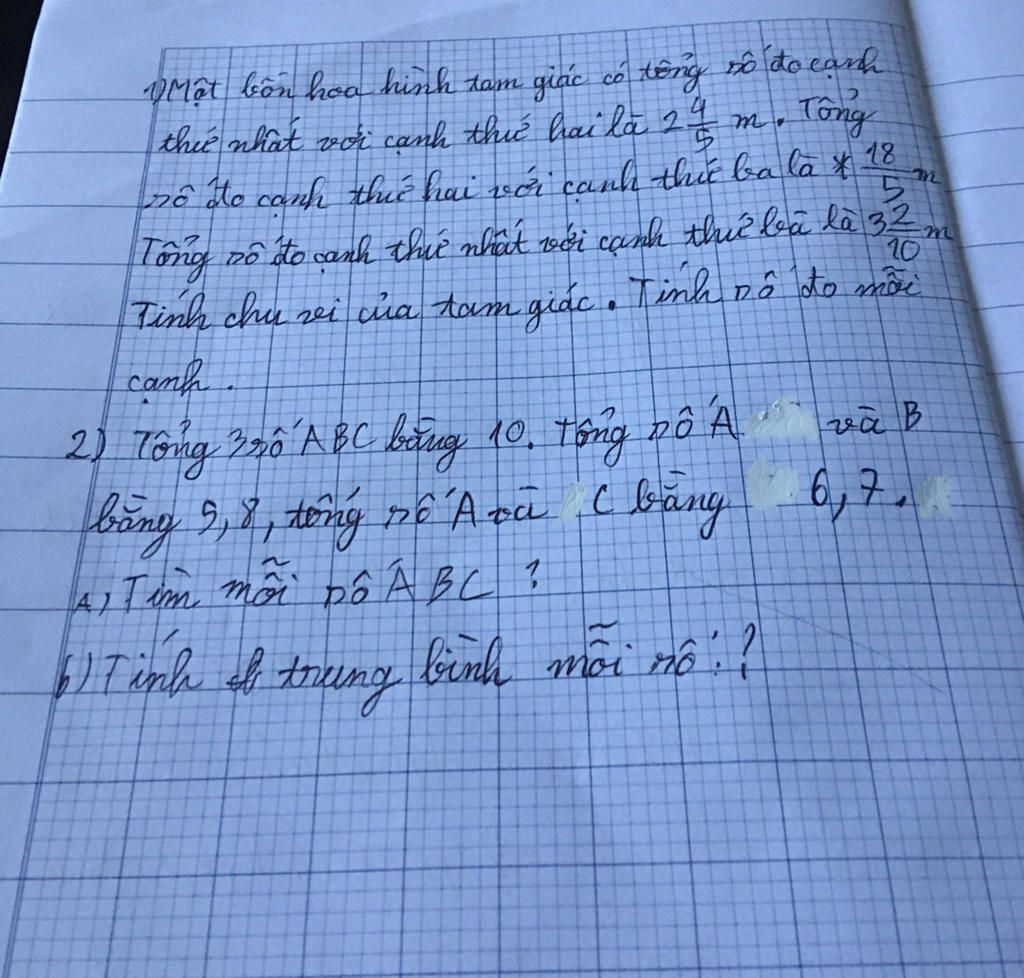 1) Một bồn hoa hình tam giác có tổng số đo cạnh
thứ nhất với cạnh thứ hai là 2 4/5 m. Tổng
số đo cạnh thứ hai với cạnh thứ ba là 18/5 m
Tổng số đo cạnh thứ nhất với cạnh thứ ba là 3 2/10 m
Tính chu vi của tam giác. Tính số đo mỗi
cạnh.
2) Tổng 3 số ABC bằng 10. tổng số A và B
bằng 5,8, tổng số A và C bằng 6,7.
A) Tìm mỗi số A BC ?
b) Tính trung bình mỗi số ?